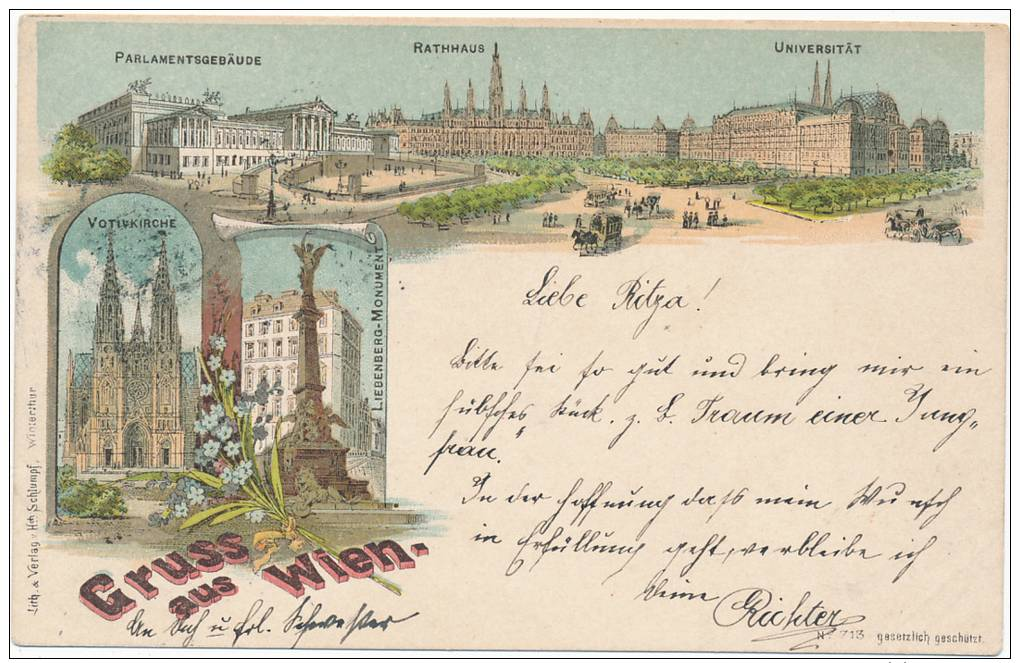 PARLAMENTSGEBÄUDE
RATHHAUS
UNIVERSITÄT
VOTIVKIRCHE
LIEBENBERG-MONUMENT
Liebe Ritza!
Bitte sei so gut und bring mir ein
hübsches Stück. z. B. Traum einer Jung„
frau."
In der Hoffnung dass mein Wunsch
in Erfüllung geht, verbleibe ich
Deine
Richter
Gruss
aus Wien.
An Dich u Frl. Schwester
Lith. & Verlag v. Hch Schlumpf, Winterthur
No 713 gesetzlich geschützt.